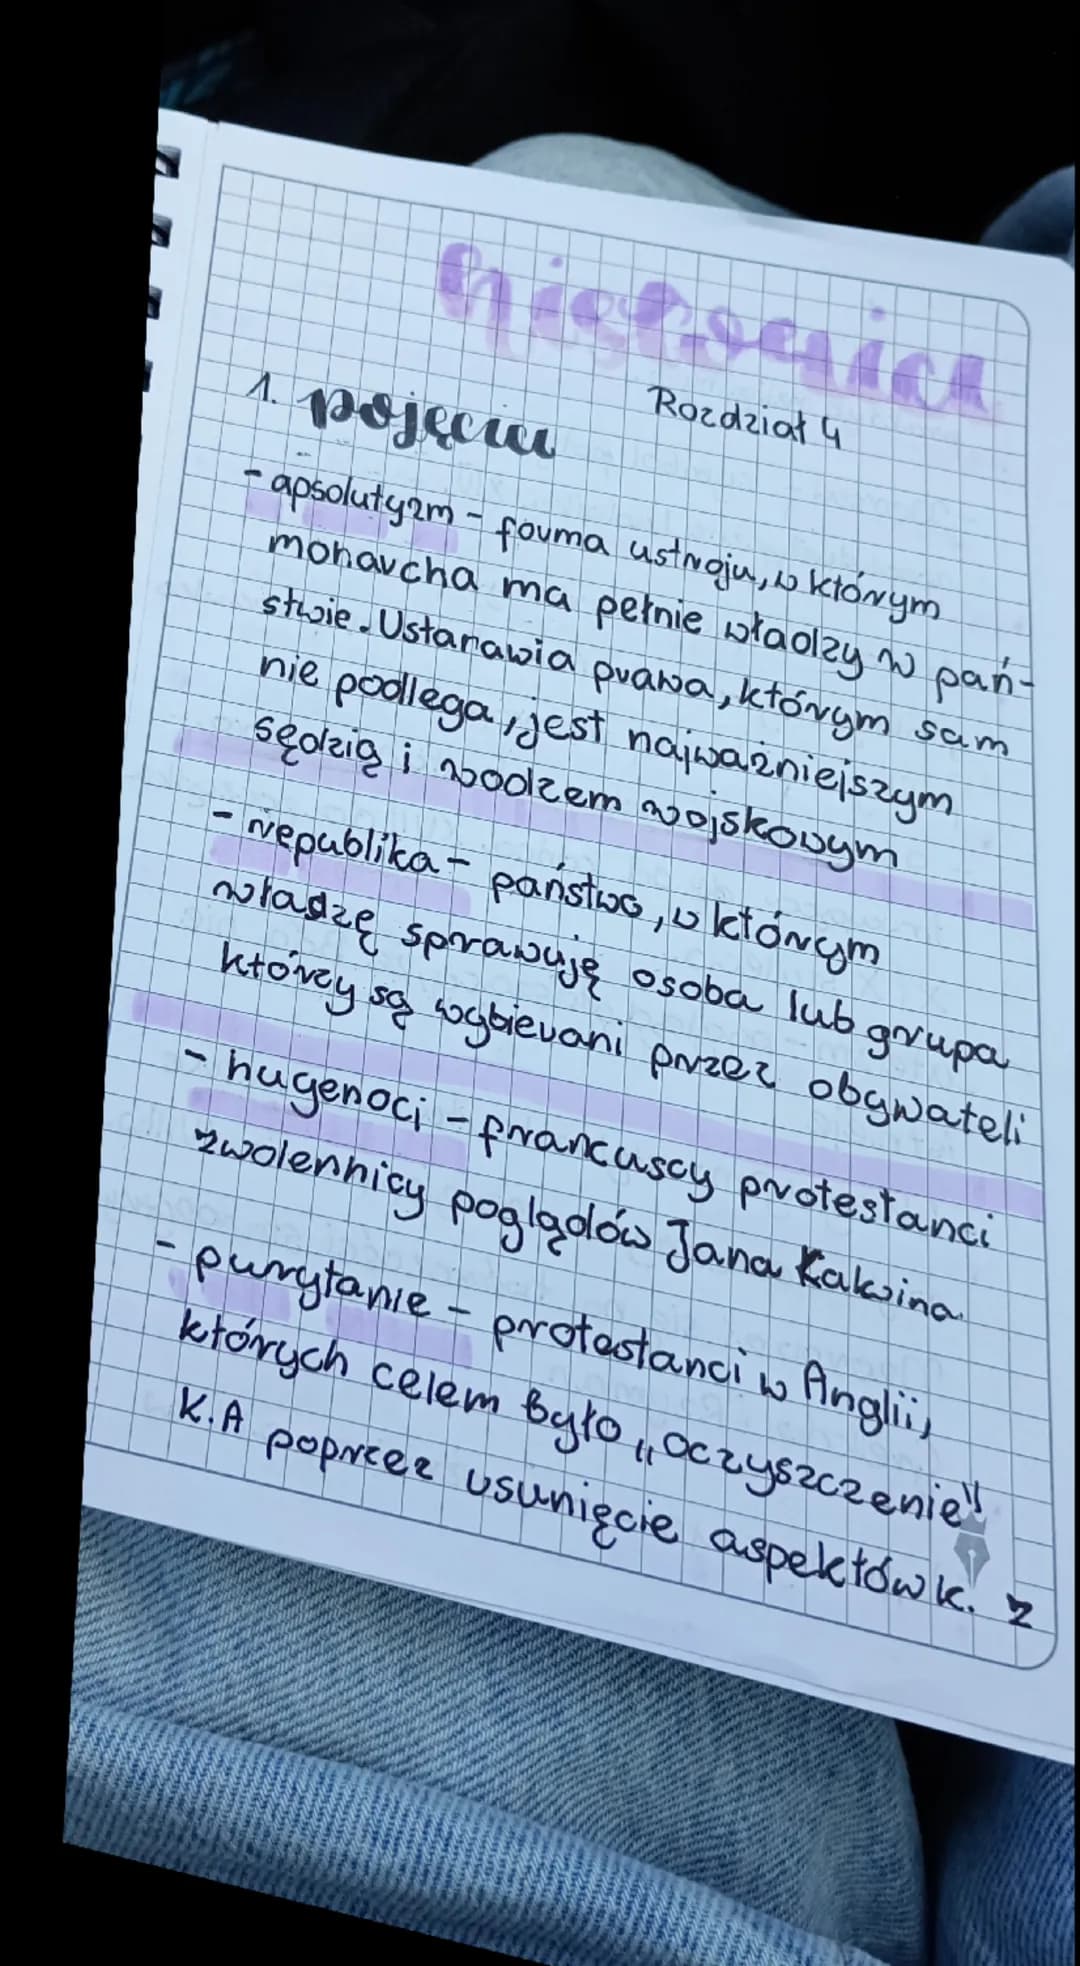 historia
Rozdział 4
1. pojęcia
- apsolutyzm - forma ustroju, w którym
monarcha ma pełnie władzy w pań-
stwie. Ustanawia prawa, którym sam
nie podlega, jest najważniejszym
sędzią i wodzem wojskowym
- republika - państwo, w którym
władzę sprawują osoba lub grupa
którzy są wybierani przez obywateli
- hugenoci - francuscy protestanci
zwolennicy poglądów Jana Kalwina.
- purytanie - protestanci w Anglii,
których celem było „oczyszczenie"
K.A poprzez usunięcie aspektów k. z